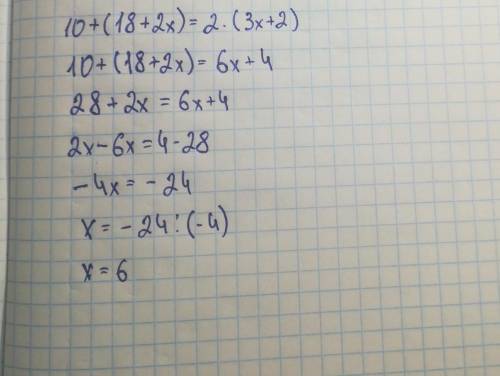 10+(18+2x)=2·(3x+2)
10+(18+2x)=6x+4
28+2x=6x+4
2x-6x=4-28
-4x=-24
x=-24:(-4)
x=6